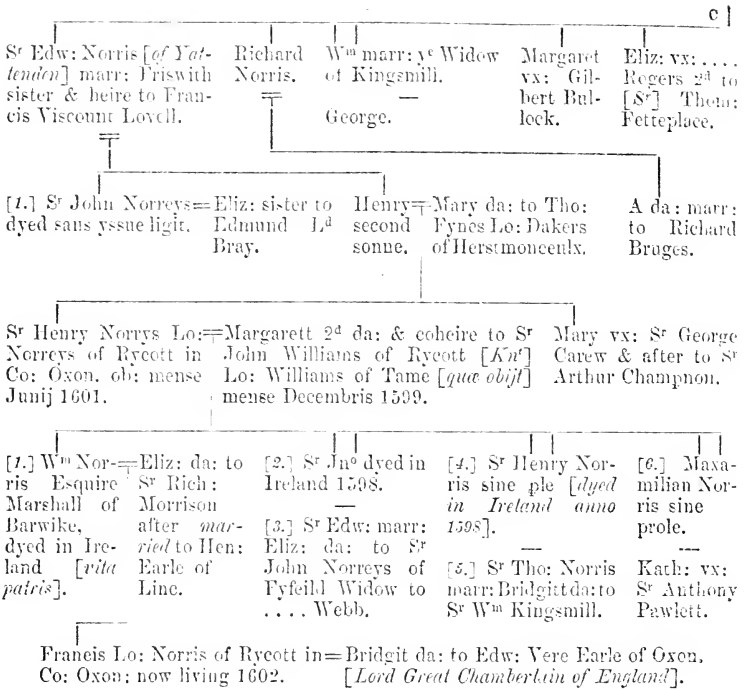 c |
Sʳ Edw: Norris [of Yat-
tenden] marr: Friswith
sister & heire to Fran-
cis Viscount Lovell.
Richard
Norris.
Wᵐ marr: yᵉ Widow
of Kingsmill.
—
George.
Margaret
vx: Gil-
bert Bul-
lock.
Eliz: vx: ....
Rogers 2ᵈ to
[Sʳ] Thom:
Fetteplace.
[1.] Sʳ John Norreys=
dyed sans yssue ligit.
Eliz: sister to
Edmund Lᵈ
Bray.
Henry=
second
sonne.
Mary da: to Tho:
Fynes Lo: Dakers
of Herstmonceulx.
A da: marr:
to Richard
Bruges.
Sʳ Henry Norrys Lo:=
Norreys of Rycott in
Co: Oxon. ob: mense
Junij 1601.
Margarett 2ᵈ da: & coheire to Sʳ
John Williams of Rycott [Knᵗ]
Lo: Williams of Tame [quæ obijt]
mense Decembris 1599.
Mary vx: Sʳ George
Carew & after to Sʳ
Arthur Champnon.
[1.] Wᵐ Nor-=
ris Esquire
Marshall of
Barwike,
dyed in Ire-
land [vita
patris].
Eliz: da: to
Sʳ Rich:
Morrison
after mar-
ried to Hen:
Earle of
Linc.
[2.] Sʳ Jnᵒ dyed in
Ireland 1598.
—
[3.] Sʳ Edw: marr:
Eliz: da: to Sʳ
John Norreys of
Fyfeild Widow to
.... Webb.
[4.] Sʳ Henry Nor-
ris sine ple [dyed
in Ireland anno
1598].
—
[5.] Sʳ Tho: Norris
marr: Bridgitt da: to
Sʳ Wᵐ Kingsmill.
[6.] Maxa-
milian Nor-
ris sine
prole.
—
Kath: vx:
Sʳ Anthony
Pawlett.
Francis Lo: Norris of Rycott in=Bridgit da: to Edw: Vere Earle of Oxon,
Co: Oxon: now living 1602. [Lord Great Chamberlain of England].